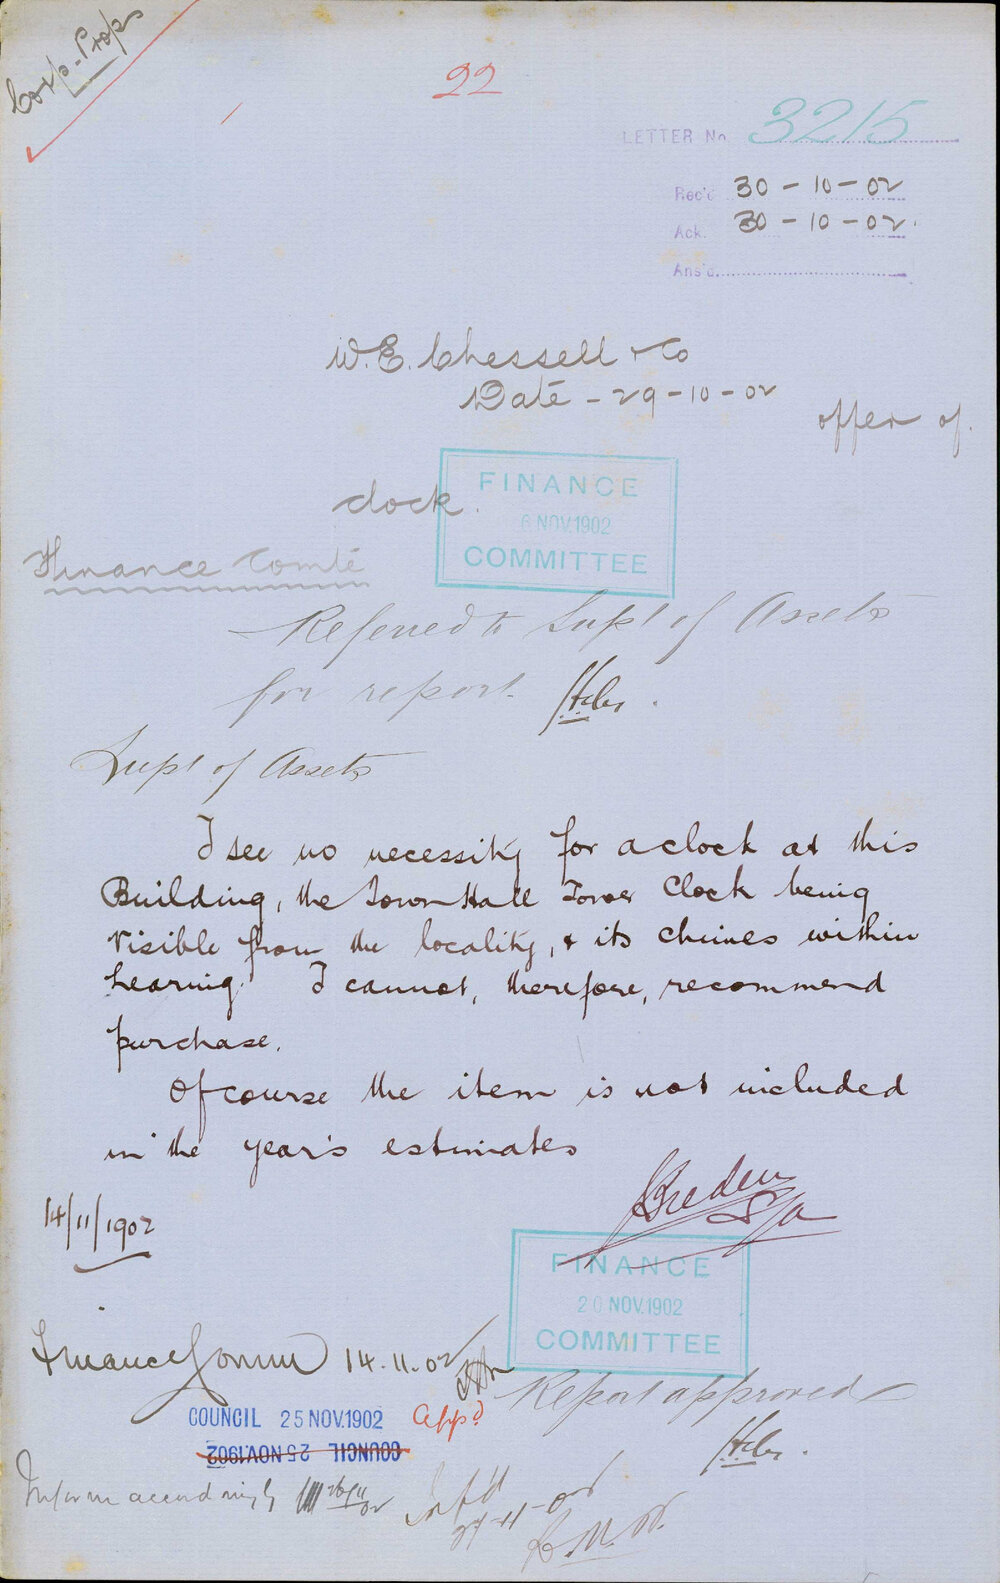 Corp. Props
22
LETTER No 3215
Rec'd 30-10-02
Ack. 30-10-02.
Ans'd.
W. E. Chessell & Co
Date - 29-10-02
offer of
clock.
FINANCE
6 NOV. 1902
COMMITTEE
Finance Comte
Referred to Supt of Assets
for report.
Supt of Assets
I see no necessity for a clock at this
Building, the Town Hall Tower Clock being
visible from the locality, & its chimes within
hearing. I cannot, therefore, recommend
purchase.
Of course the item is not included
in the year's estimates
14/11/1902
FINANCE
20 NOV. 1902
COMMITTEE
Finance Comm 14.11.02
Report approved
COUNCIL 25 NOV. 1902
App d
COUNCIL 25 NOV. 1902
Inform accordingly 26/11/02
Inf'd
27-11-02